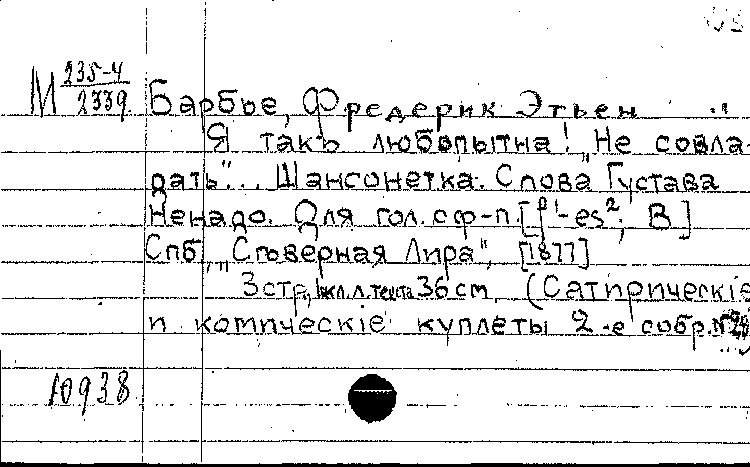 М 235-4/2339. Барбье, Фредерик Этьен
Я такъ любопытна! „Не совла-
дать"... Шансонетка. Слова Густава
Ненадо. Для гол. с ф-п. [f¹-es²; B]
Спб, „Сѣверная Лира", [1877]
3 стр., вкл. л. текста 36 см. (Сатирическiе
и комическiе куплеты 2-е собр. №
10938